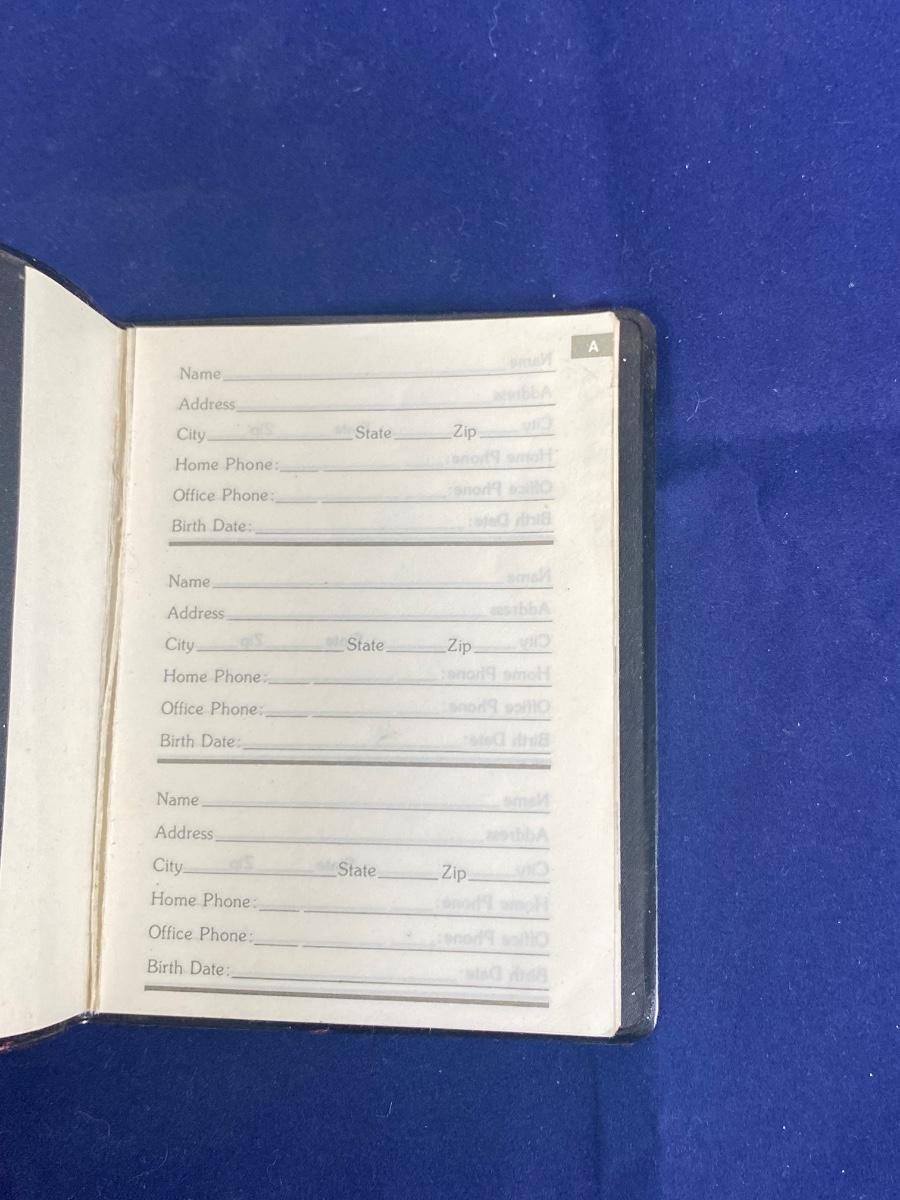 A
Name
Address
City State Zip
Home Phone:
Office Phone:
Birth Date:
Name
Address
City State Zip
Home Phone:
Office Phone:
Birth Date:
Name
Address
City State Zip
Home Phone:
Office Phone:
Birth Date: